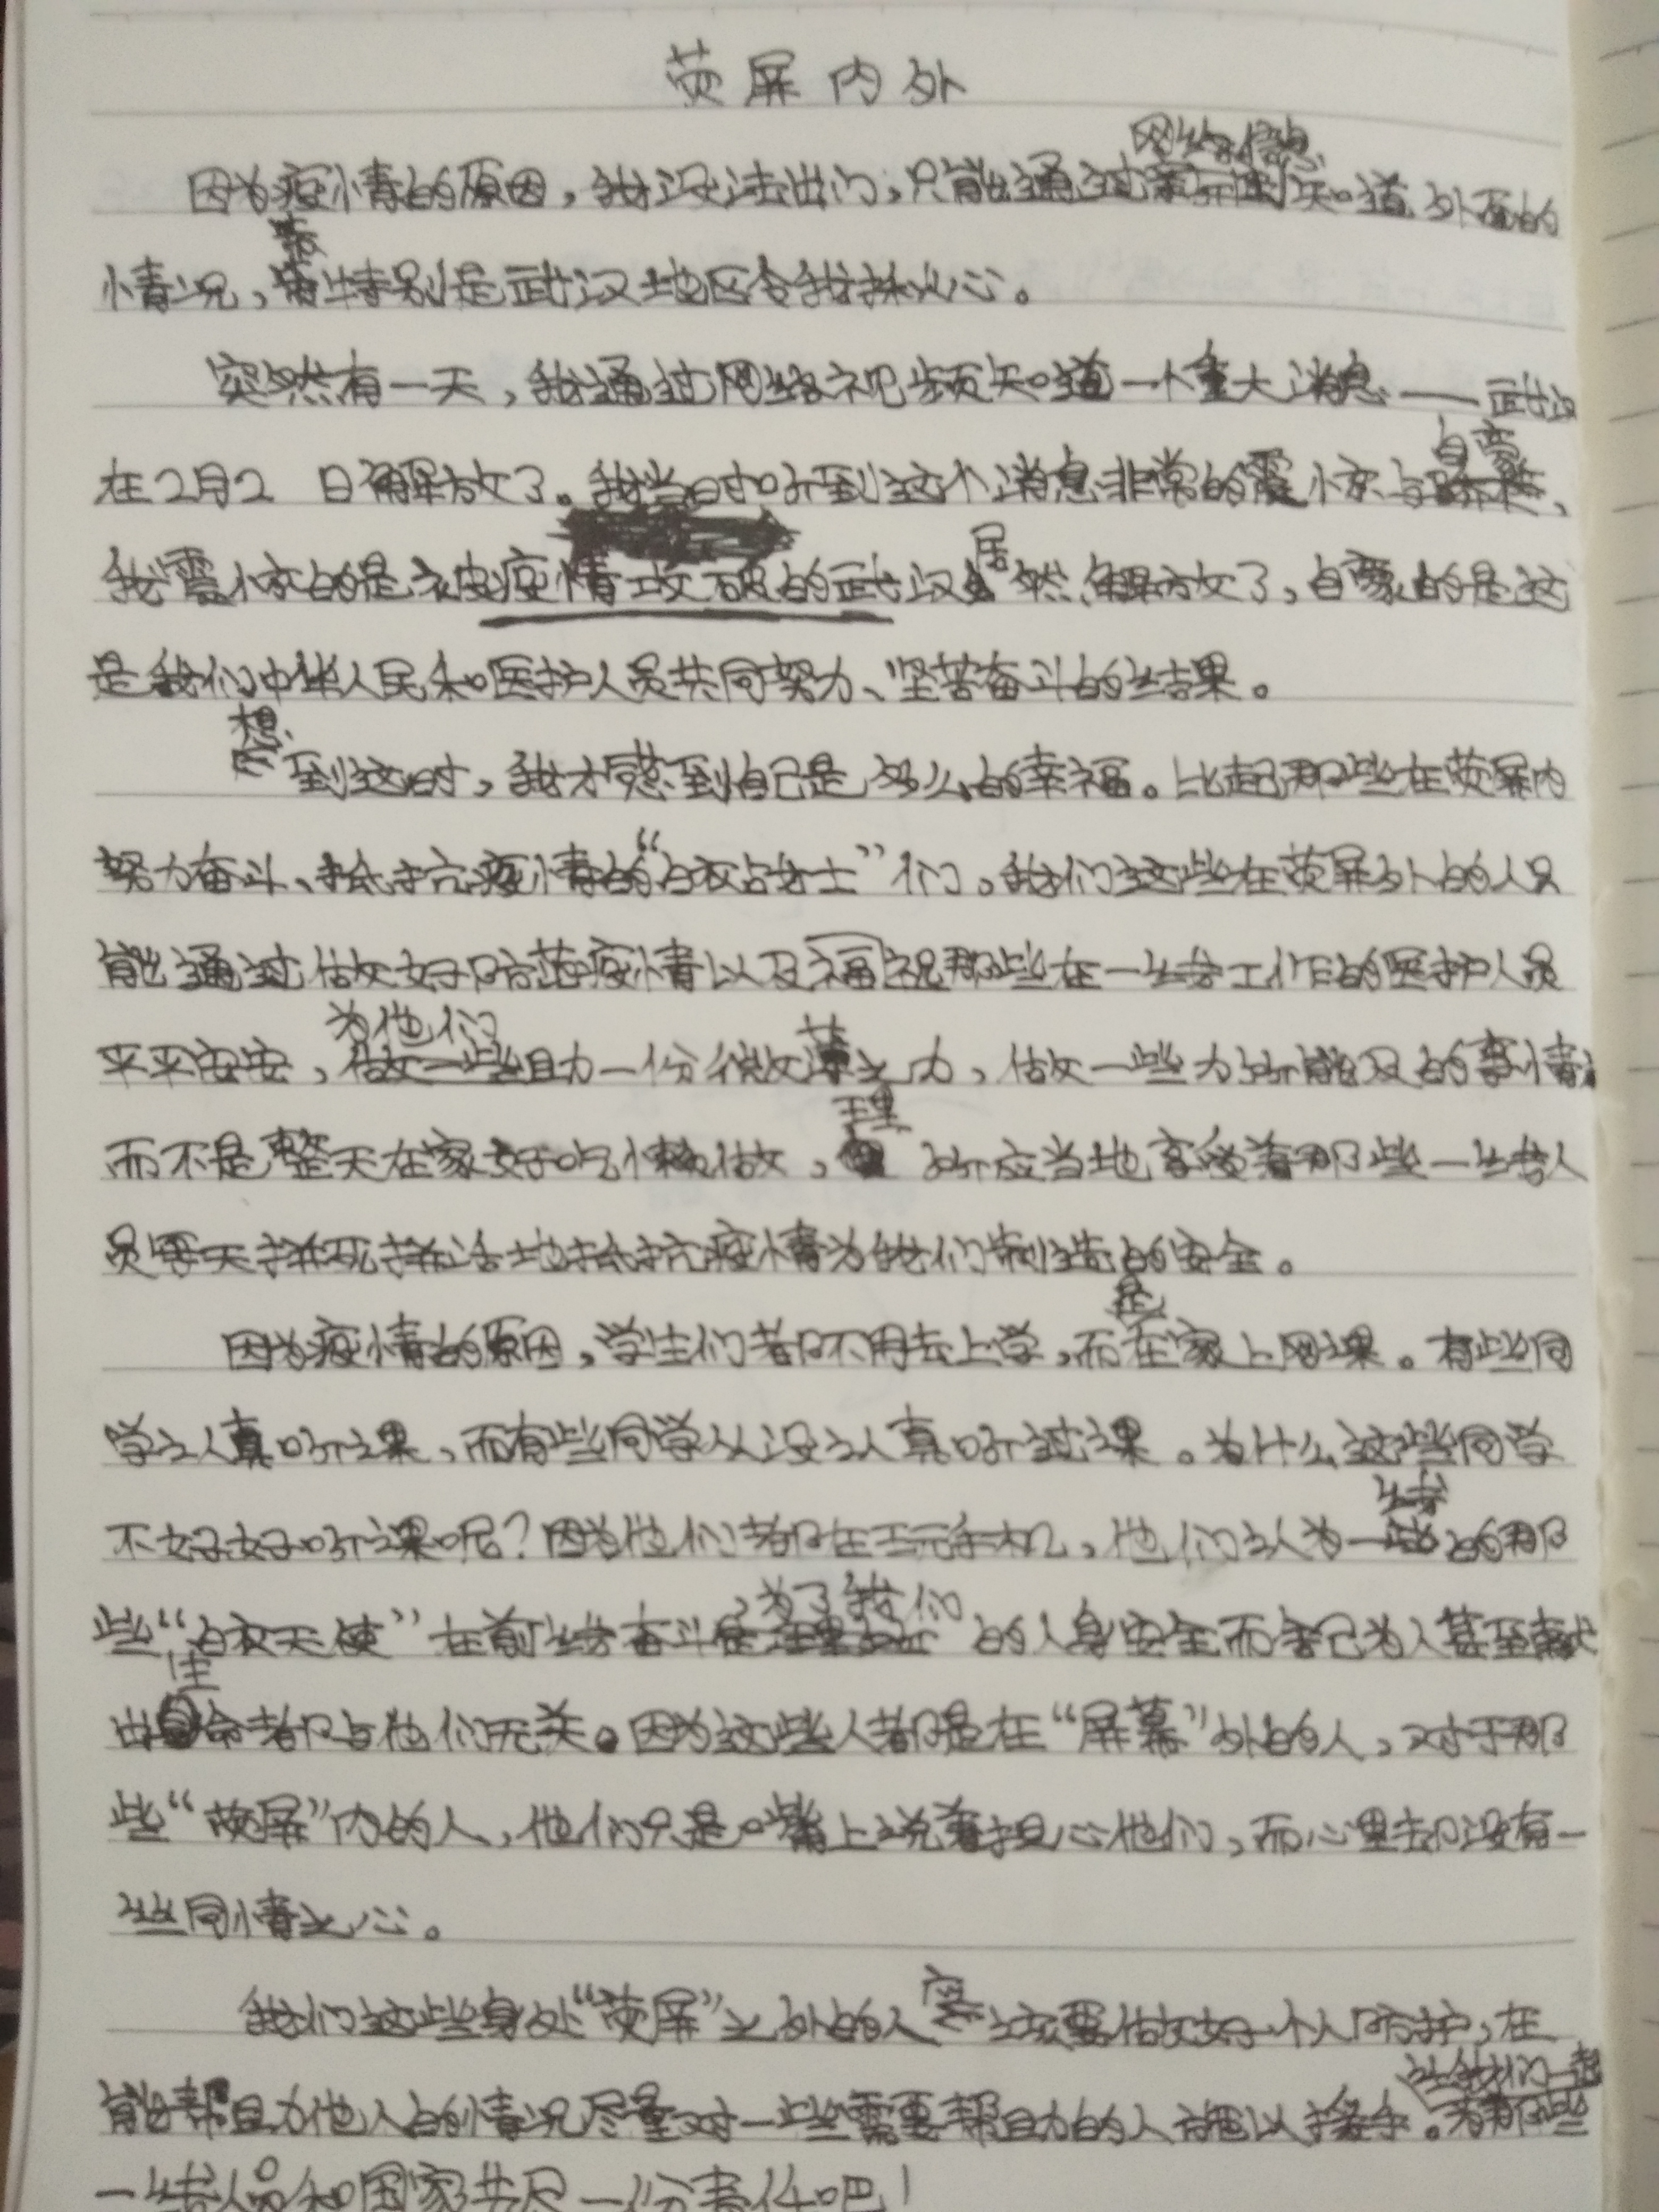 荧屏内外
因为疫情的原因，我没法出门，只能通过网络信息知道外面的
情况，特别是武汉地区令我揪心。
突然有一天，我通过网络视频知道一个重大消息——武汉
在2月2 日解放了。我当时听到这个消息非常的震惊与自豪，
我震惊的是被疫情攻破的武汉居然解放了，自豪的是这
是我们中华人民和医护人员共同努力、坚苦奋斗的结果。
想到这时，我才感到自己是多么的幸福。比起那些在荧屏内
努力奋斗、抵抗疫情的“白衣战士”们。我们这些在荧屏外的人只
能通过做好防范疫情以及祝福那些在一线工作的医护人员
平平安安，为他们助力一份微薄之力，做一些力所能及的事情，
而不是整天在家好吃懒做，理所应当地享受着那些一线人
员每天拼死拼活地抵抗疫情为我们制造的安全。
因为疫情的原因，学生们都不用去上学，而是在家上网课。有些同
学认真听课，而有些同学从没认真听过课。为什么这些同学
不好好听课呢？因为他们都在玩手机，他们认为一线的那
些“白衣天使”在前线奋斗，为了我们的人身安全而舍己为人甚至献
出生命都与他们无关。因为这些人都是在“屏幕”外的人，对于那
些“荧屏”内的人，他们只是嘴上说着担心他们，而心里却没有一
丝同情之心。
我们这些身处“荧屏”之外的人应该要做好个人防护，在
能帮助他人的情况尽量对一些需要帮助的人施以援手。让我们一起为那些
一线人员和国家共尽一份责任吧！